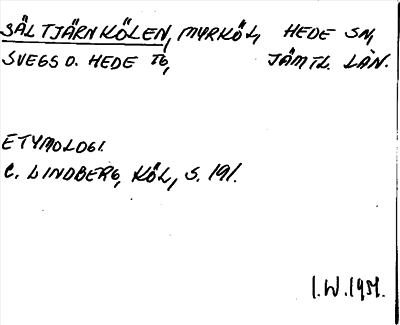 SÄLTJÄRNKÖLEN, MYRKÖL, HEDE SN,
SVEGS O. HEDE TG, JÄMTL. LÄN.
ETYMOLOGI.
C. LINDBERG, KÖL, S. 191.
I.W. 1951.